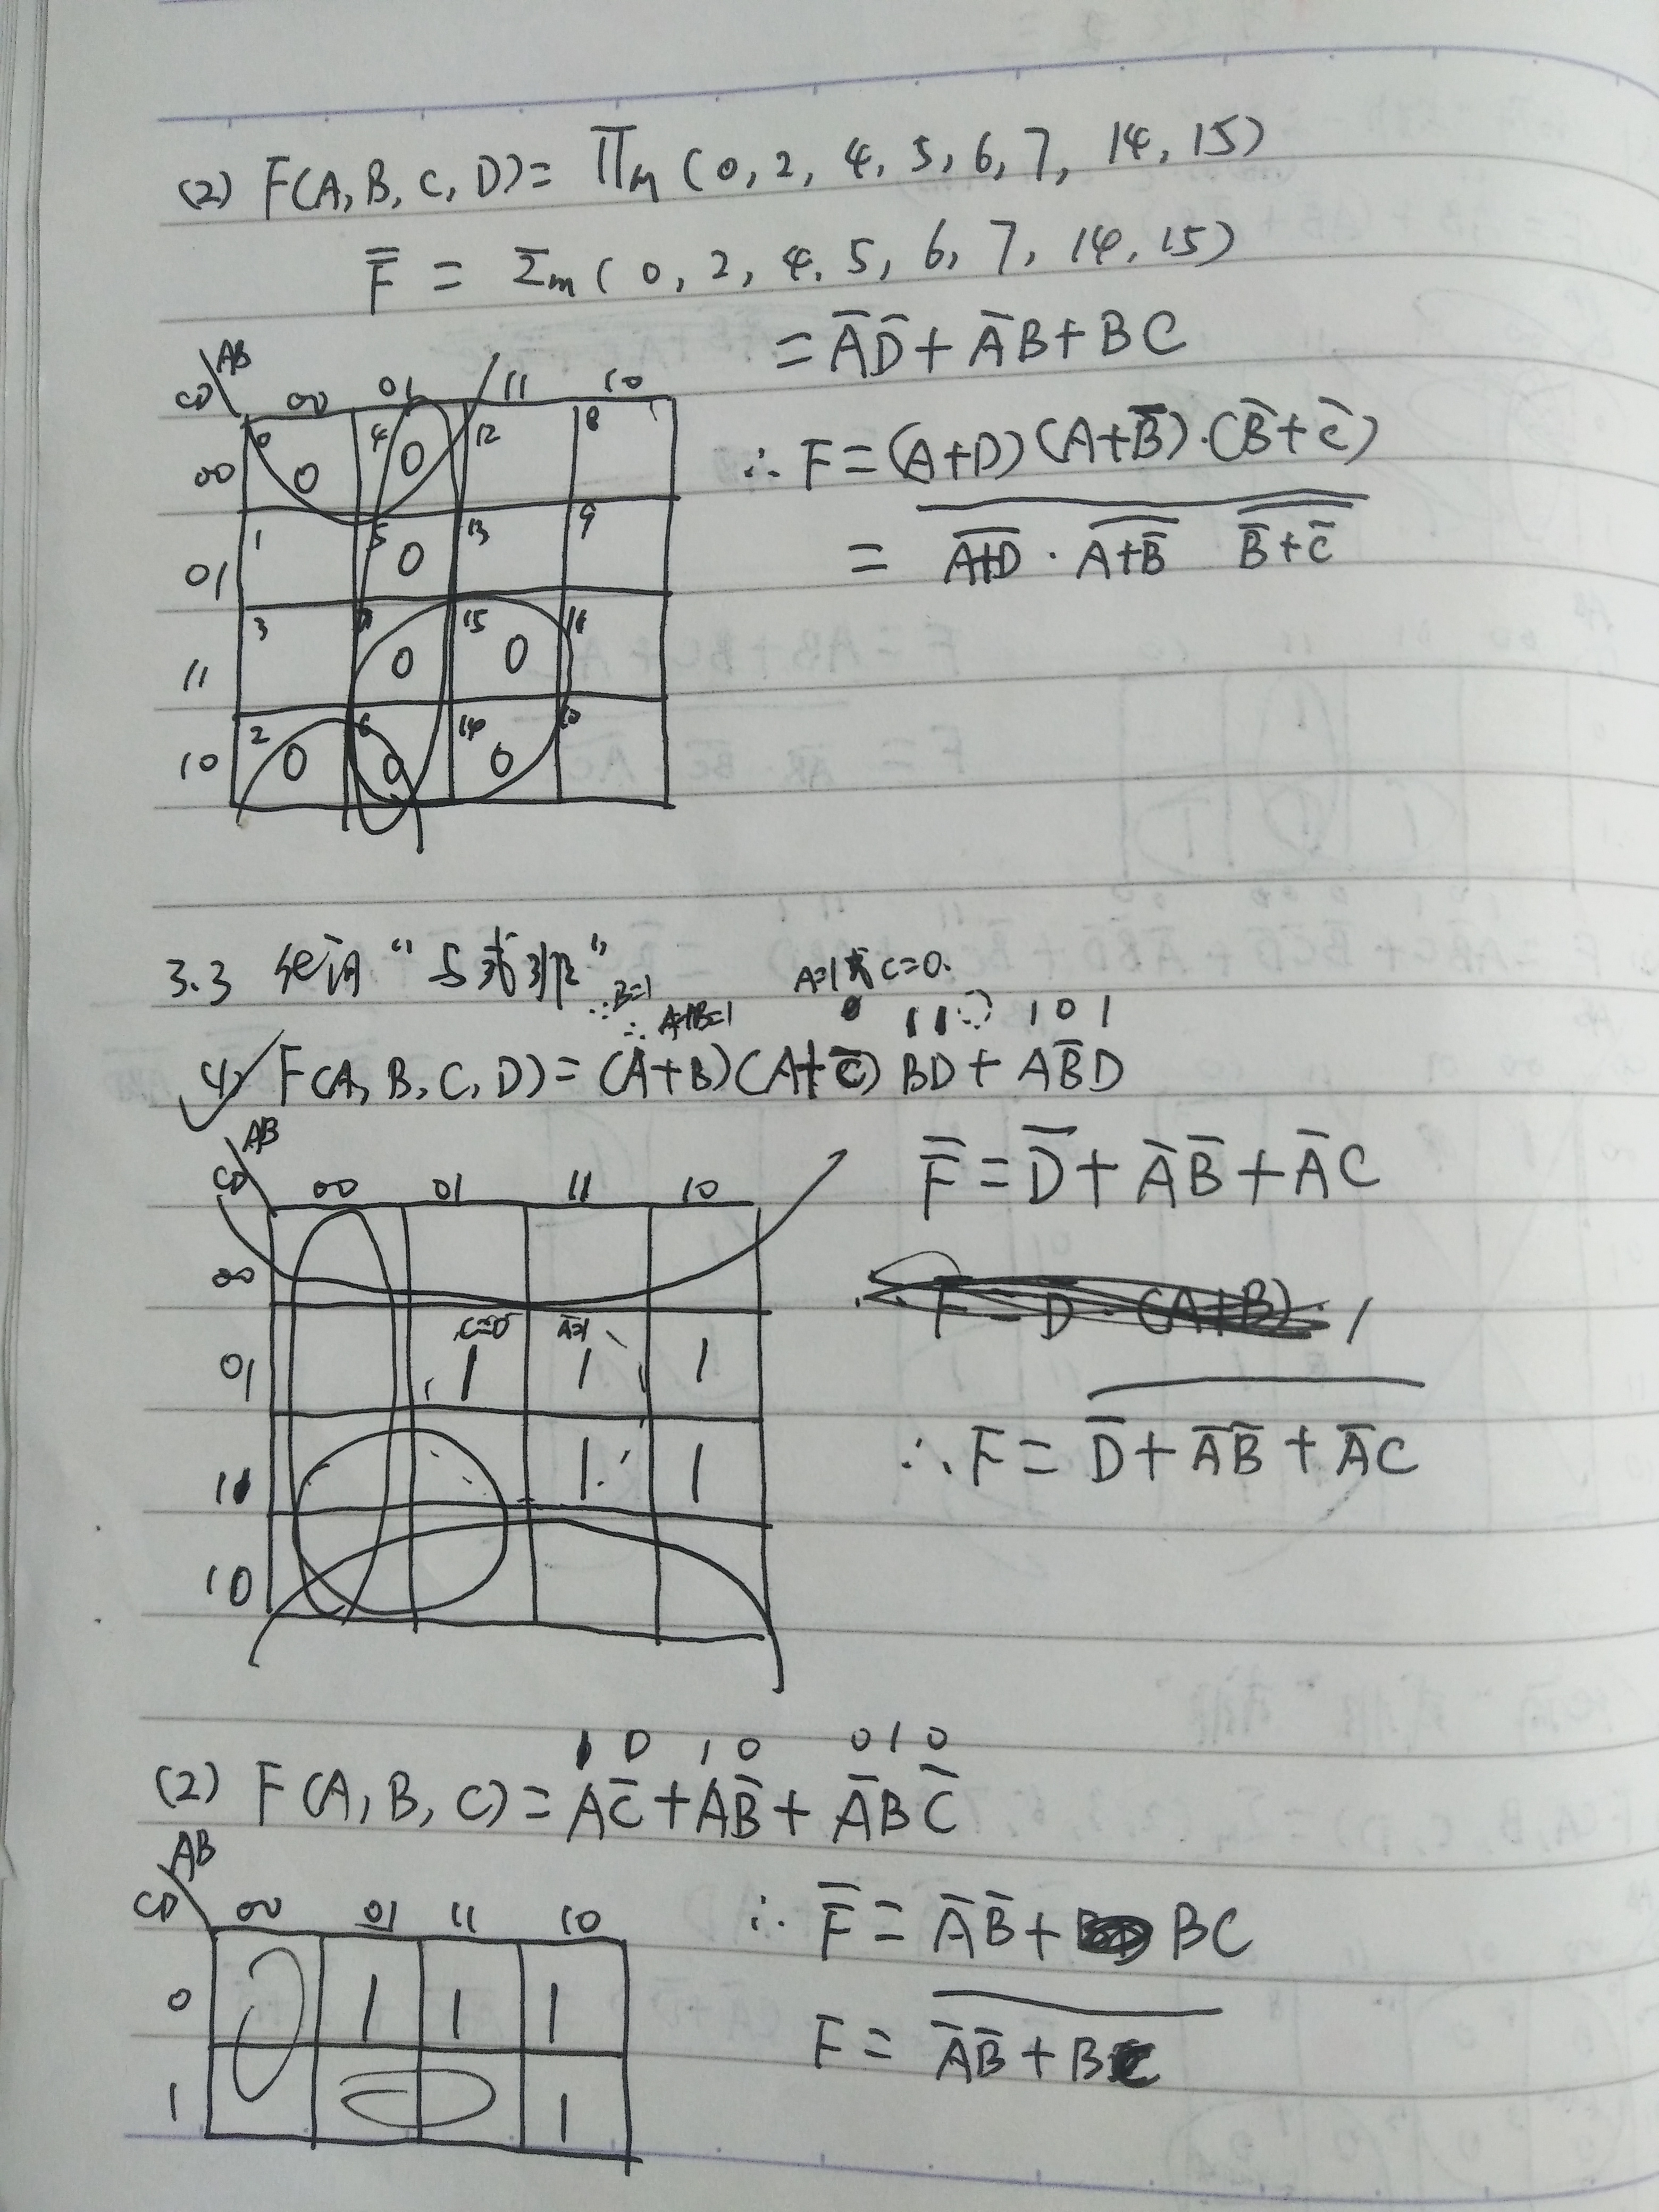 (2) F(A, B, C, D) = Π_M (0, 2, 4, 5, 6, 7, 14, 15)
F̅ = Σm (0, 2, 4, 5, 6, 7, 14, 15)
= A̅D̅ + A̅B + BC
AB
CD 00 01 11 10
00 0 0 4 0 12 8
01 1 5 0 13 9
11 3 7 0 15 0 11
10 2 0 6 0 14 0 10
∴ F = (A+D)(A+B̅)·(B̅+C̅)
= \overline{\overline{A+D} · \overline{A+B̅} \overline{B̅+C̅}}
3.3 化间 "与或非"
∵B=1
∴A+B=1
A=1或C=0.
1 1 1 0 1
(1) F(A, B, C, D) = (A+B)(A+C̅) BD + AB̅D
AB
CD 00 01 11 10
00
01 C=0 1 A=1 1 1
11 1 1
10
F̅ = D̅ + A̅B̅ + A̅C
∴ F = \overline{D̅ + A̅B̅ + A̅C}
1 0 1 0 0 1 0
(2) F(A, B, C) = AC̅ + AB̅ + A̅BC̅
AB
CD 00 01 11 10
0 1 1 1
1 1
∴ F̅ = A̅B̅ + BC
F = \overline{A̅B̅ + BC}